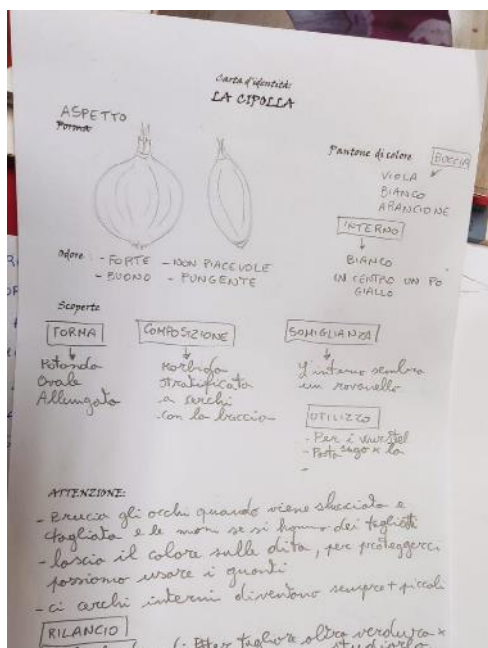 Carta d'identità:
LA CIPOLLA
ASPETTO
Forma
Pantone di colore
BUCCIA
VIOLA
BIANCO
ARANCIONE
INTERNO
BIANCO
IN CENTRO UN PO
GIALLO
Odore: - FORTE - NON PIACEVOLE
- BUONO - PUNGENTE
Scoperte
FORMA
Rotonda
Ovale
Allungata
COMPOSIZIONE
Morbida
stratificata
a cerchi
con la buccia
SOMIGLIANZA
L'interno sembra
un ravanello
UTILIZZO
- Per i wurstel
- Pasta sugo x la
-
ATTENZIONE:
- Brucia gli occhi quando viene sbucciata e
tagliata e le mani se si hanno dei taglietti
- lascia il colore sulle dita, per proteggerci
possiamo usare i guanti
- ci cerchi interni diventano sempre + piccoli
RILANCIO
tagliare altra verdura x
studiarla